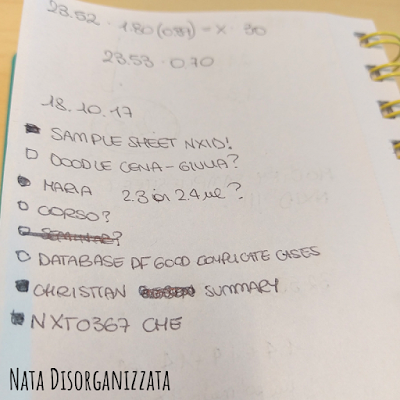 23.52 · 1.80 (0.37) = x · 30
23.53 · 0.70
18.10.17
SAMPLE SHEET NX10!
DOODLE CENA - GIULIA?
MARIA 2.3 o 2.4 µl?
CORSO?
DATABASE OF GOOD COMPLICATE CASES
CHRISTIAN SUMMARY
NXT0367 CHE
Nata Disorganizzata